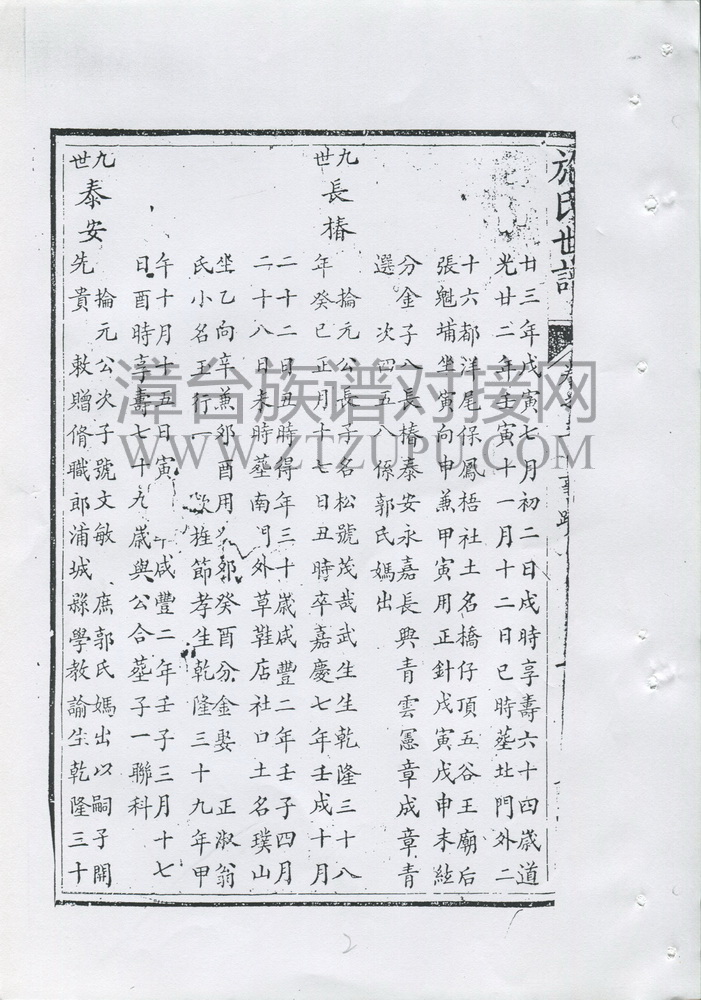 施氏世譜
廿三年戊寅七月初二日戌時享壽六十四歲道
光廿二年壬寅十一月十二日巳時葬北門外二
十六都洋尾保鳳梧社土名橋仔頂五谷王廟后
張魁埔坐寅向申兼甲寅用正針戊寅戊申木經
分金子八長椿泰安永嘉長興青雲憲章成章青
選 次四五八係郭氏媽出
九世 長椿
掄元公長子名松號茂哉武生生乾隆三十八
年癸巳正月十七日丑時卒嘉慶七年壬戌十月
二十二日丑時得年三十歲咸豐二年壬子四月
二十八日未時葬南門外草鞋店社口土名璞山
坐乙向辛兼卯酉用 卯癸酉分金娶 正淑翁
氏小名玉行一 旌節孝生乾隆三十九年甲
午十月十五日寅 咸豐二年壬子三月十七
日酉時享壽七十九歲與公合葬子一聯科
九世 泰安
掄元公次子號文敏 庶郭氏媽出以嗣子開
先貴 敕贈脩職郎浦城縣學教諭生乾隆三十
漳台族谱对接网
WWW.ZTZUPU.COM
2